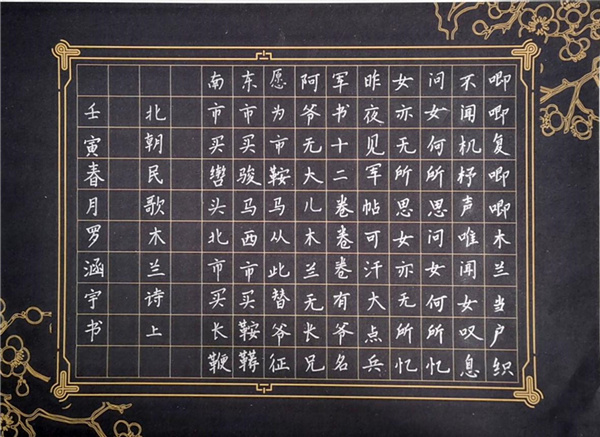 唧唧复唧唧木兰当户织
不闻机杼声唯闻女叹息
问女何所思问女何所忆
女亦无所思女亦无所忆
昨夜见军帖可汗大点兵
军书十二卷卷卷有爷名
阿爷无大儿木兰无长兄
愿为市鞍马从此替爷征
东市买骏马西市买鞍鞯
南市买辔头北市买长鞭
北朝民歌木兰诗上
壬寅春月罗涵宇书